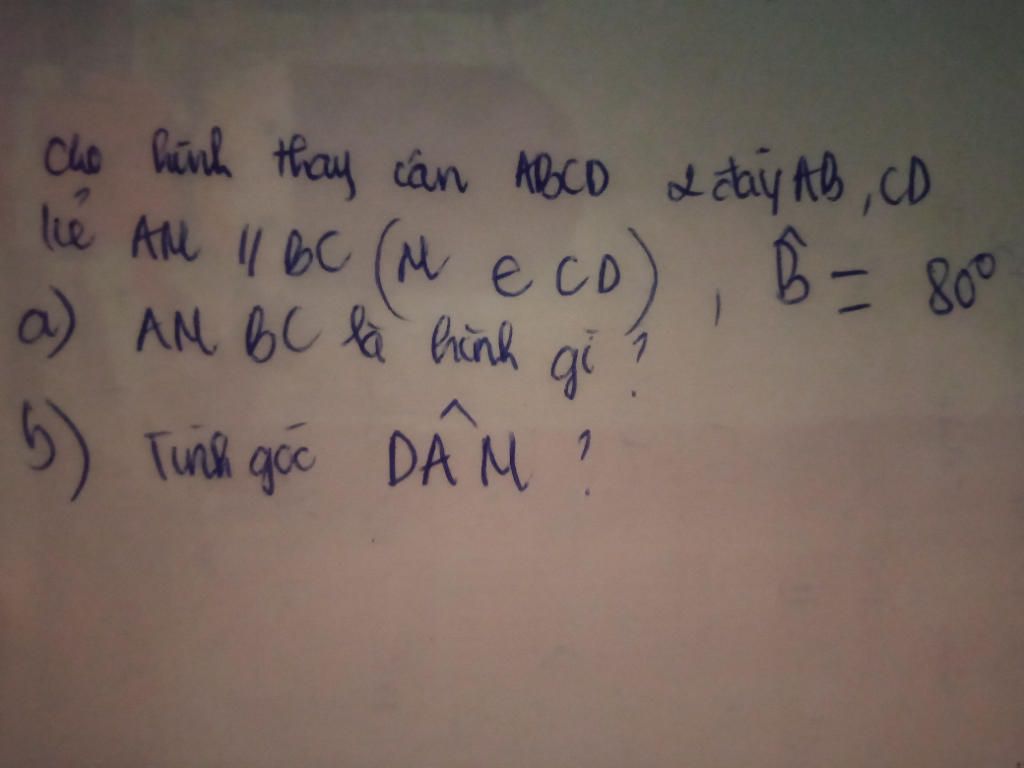 cho hình thay cân ABCD 2 đáy AB, CD
kẻ AM // BC (M ∈ CD), B̂ = 80°
a) AM BC là hình gì?
b) Tính góc DÂM?